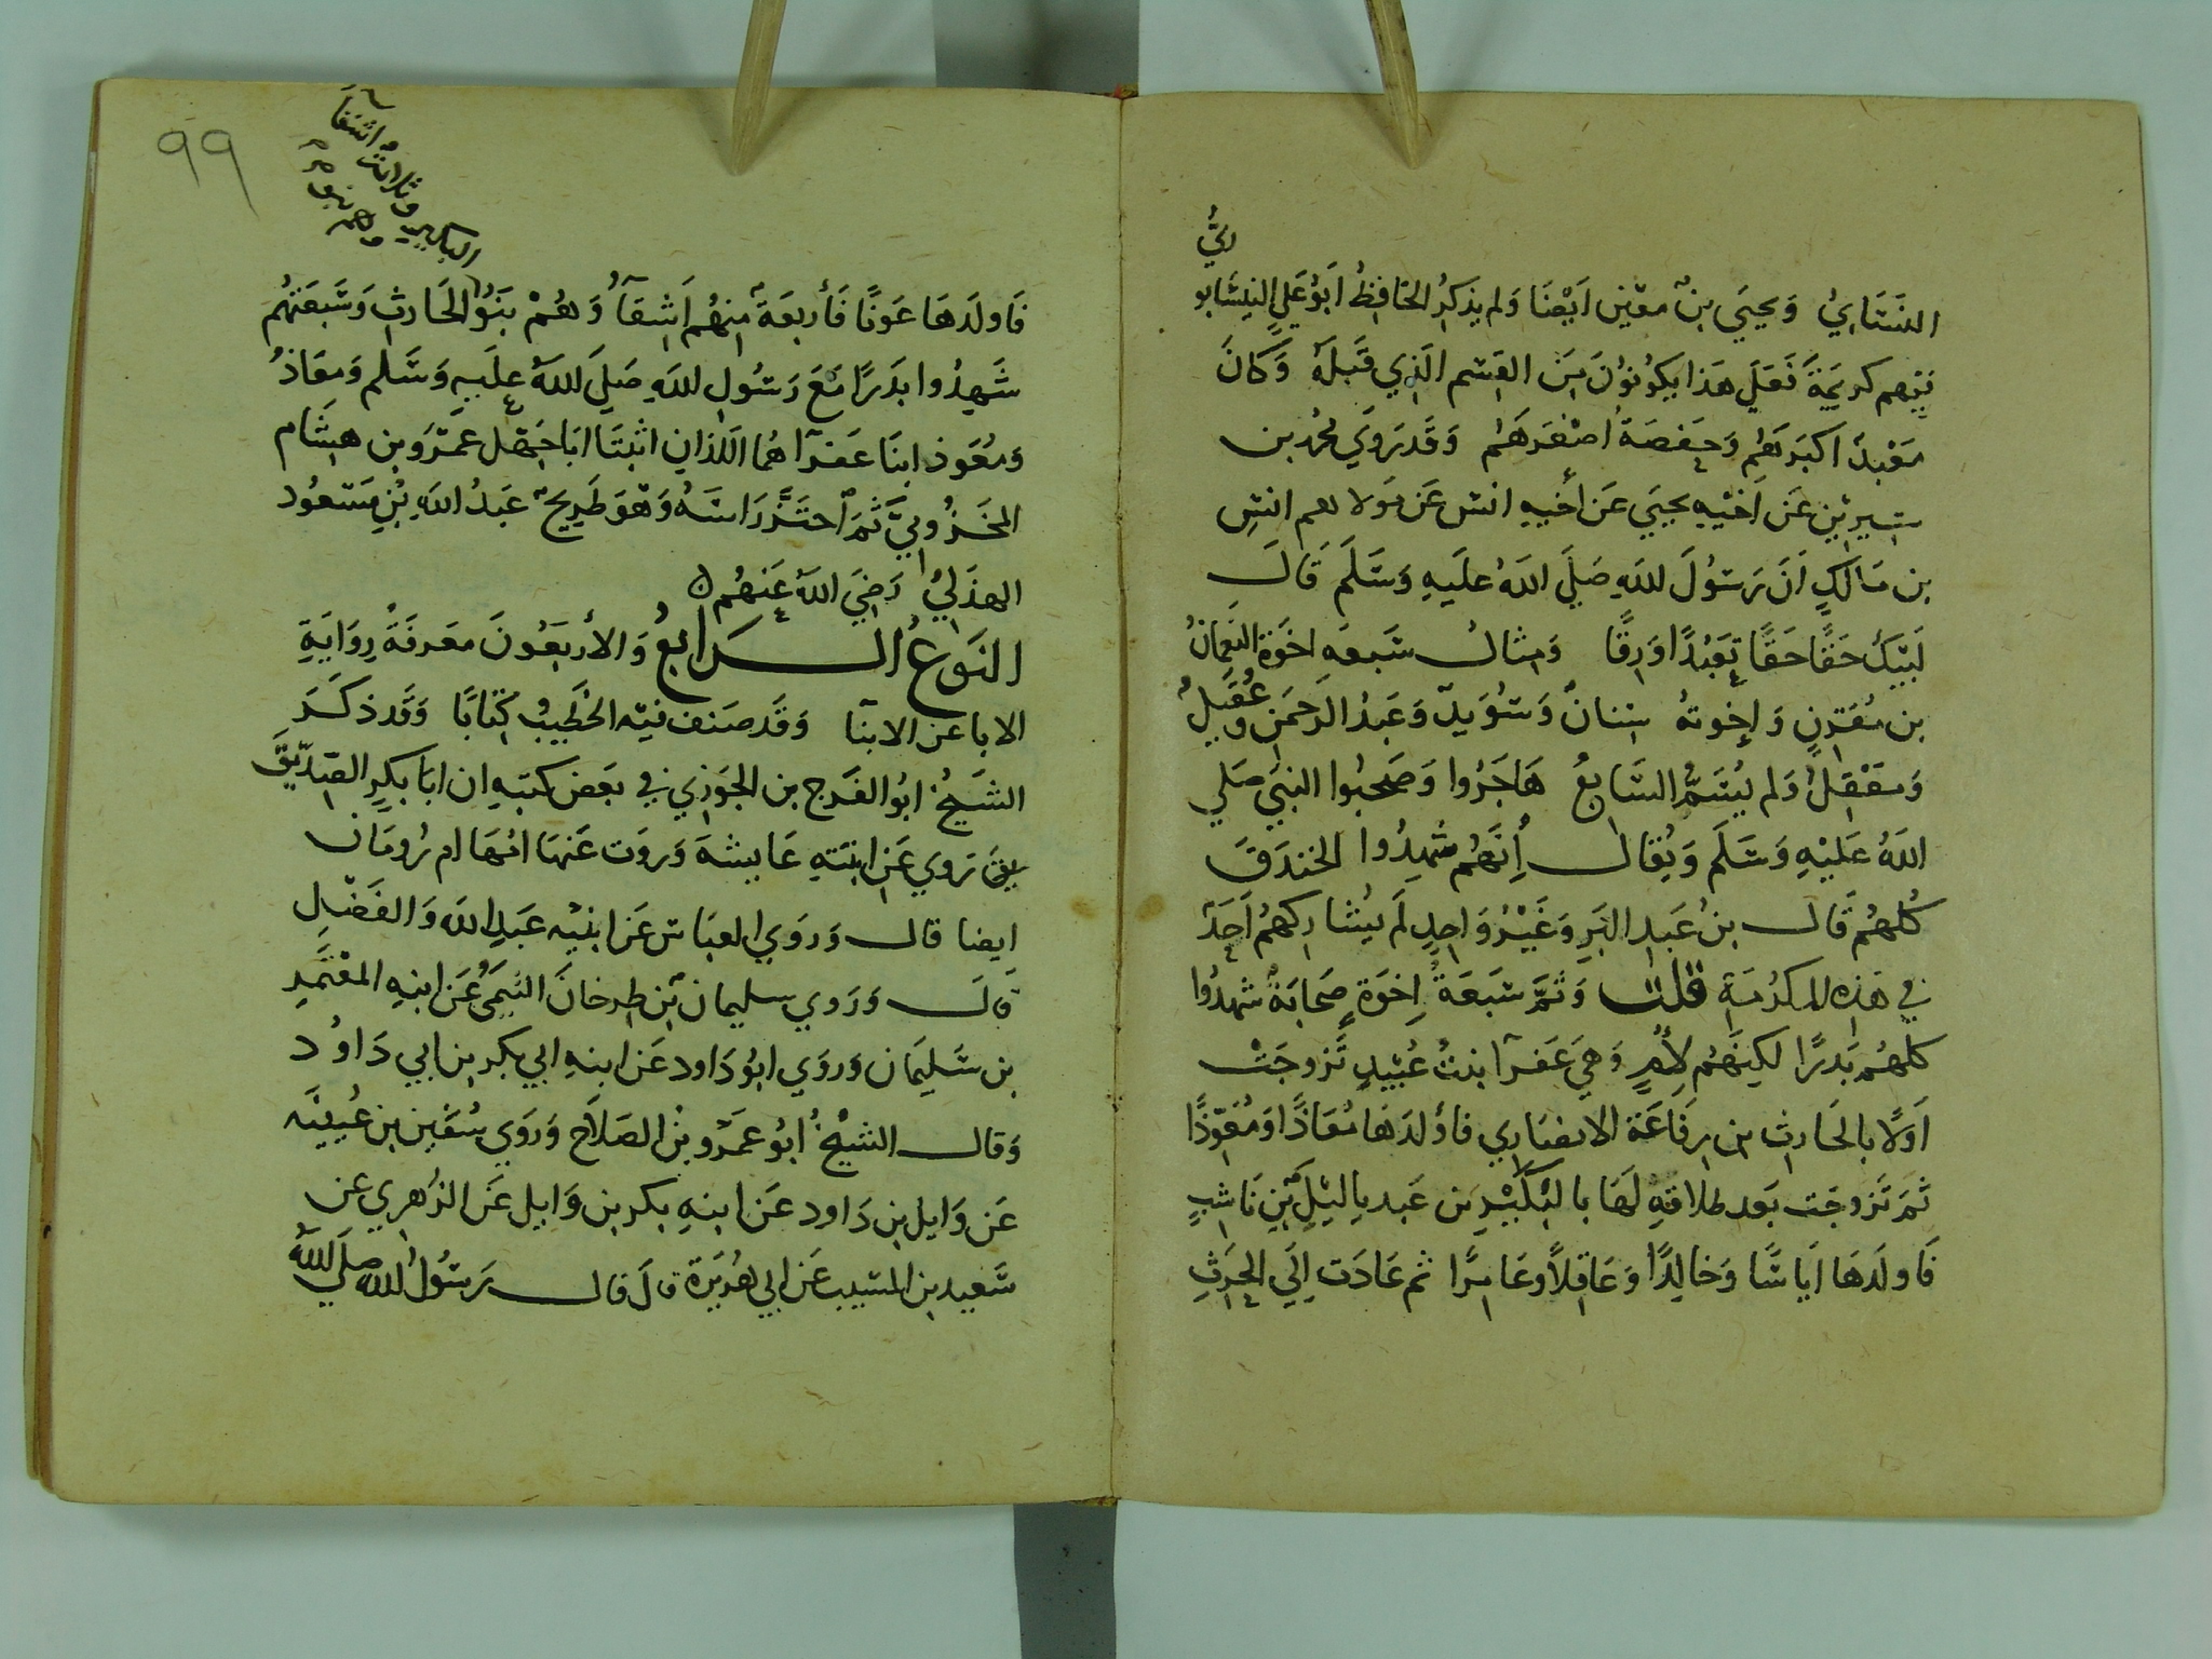 النَسَايُ وَيحيَى بنُ معين اَيْضًا وَلم يذكرُ الحَافِظُ اَبوُعَلي النيسَابو
ريُّ
فيهم كريمَةَ فَعَلَى هَذا يكوُنوُنَ مِنَ القِسْم الذِي قَبلَهُ وَكانَ
مَعْبدٌ اكبَرهُم وَحَفصَةُ اصْغرَهُم وَقَد رَوَى محمد بن
سِيرين عَن اخيْهِ يحيَى عَن أخيهِ انس عَن مَولاهم انسِ
بن مَالكٍ انَ رَسُولَ اللهِ صَلَى اللهُ علَيهِ وَسَلمَ قَالَ
لَبَيكَ حَقًا حَقًا تعَبُدًا وَرِقًا وَمِثالُ سَبعَةِ اخوَة النعَمانُ
بن مُقَرنٍ وَإخوتهُ سِنانٌ وَسُوَيدٌ وَعَبدُ الرَحمَن وعُقَيلٌ
وَمعَقِلٌ وَلم يُسَمَّ السَابعُ هَاجَرُوا وَصَحبُوا النبَي صَلي
اللهُ عَلَيْهِ وَسَلَم وَيُقال إِنَهُم شهِدُوا الخندَقَ
كُلهُم قَال بنُ عَبدِ البَرِ وَغَيْرُ وَاحِدٍ لَم يُشَارِكهُم اَحَدٌ
في هَذِه المكرُمَةِ قلتُ وَثمَّ سَبعَةُ إِخوَةٍ صَحابَةٌ شَهِدُوا
كلهُم بَدرًا لكِنَهُم لِأمٍ وَهيَ عَفرآ بنتُ عُبَيدٍ تَزوجَتْ
اَولًا بالحَارثِ بن رِفَاعَة الانصَاري فاَوْلدَهَا مُعَاذًا وَمُعَوِّذًا
ثمَ تَزوجَت بَعد طلاقهِ لهَا بالبُكَيْرِ بن عَبد يالَيْل بْن نَاشبٍ
فَاولَدهَا اَيَاسًا وَخالِدًا وَعَاقِلًا وعَامِرًا ثم عَادَت إِلَى الحَرثِ
99
فَاولَدهَا عَونًا فَأربعَة مِنهُم اَشِقآُ وَهُمْ بنوُ الحَارثِ وَسَبعَتهُم
شَهِدُوا بدَرًا مَعَ رَسُولِ اللهِ صَلَى اللهُ علَيهِ وَسَلم وَمعَاذُ
وَمُعَوذ ابنَا عَفرآ هُمَا اللذانِ اثبتَا ابَا جَهل عمَرو بن هشَام
المخَزُومِيَّ ثمَ احتَزَّ رَاسَهُ وَهوَ طَريحٌ عَبدُ اللهِ بْنِ مَسَعُود
الهذَلِيُ رَضِيَ اللهُ عَنهُم ه
النَوَعُ الرَابعُ وَالأربعَوُنَ معَرفَةُ رِوَايَةِ
الابا عَن الابنا وَقَد صَنف فيه الخَطيبُ كتابًا وَقَد ذكَرَ
الشَيخُ ابُو الفَرج بن الجَوَزي في بعَض كتبهِ ان ابَا بكرٍ الصِديّقَ
يق رَوي عَن ابنَتهِ عَايشهَ وَروَت عَنهَا امُهَا ام رُومَان
ايضا قال وَروَى العبَاس عَن ابنيْه عَبدِ الله وَالفَضْلِ
قالَ وَرَوي سليمان بْن طرخانَ التيمَى عَن ابنهِ المعْتَمِرِ
بن سَليمَان وَروَي ابُو دَاود عَن ابنهِ ابي بكر بن ابي دَاوُد
وَقال الشيْخُ ابُو عمَرو بْن الصَلَاحِ وَرَوَي سُفَين بن عُيينَه
عَن وَايل بن دَاود عَن ابنهِ بكر بن وَايل عَن الزُهري عن
سَعيد بن المسَيب عَن ابي هُرَيرَة قالَ قال رَسُوُل الله صلَى اللهُ